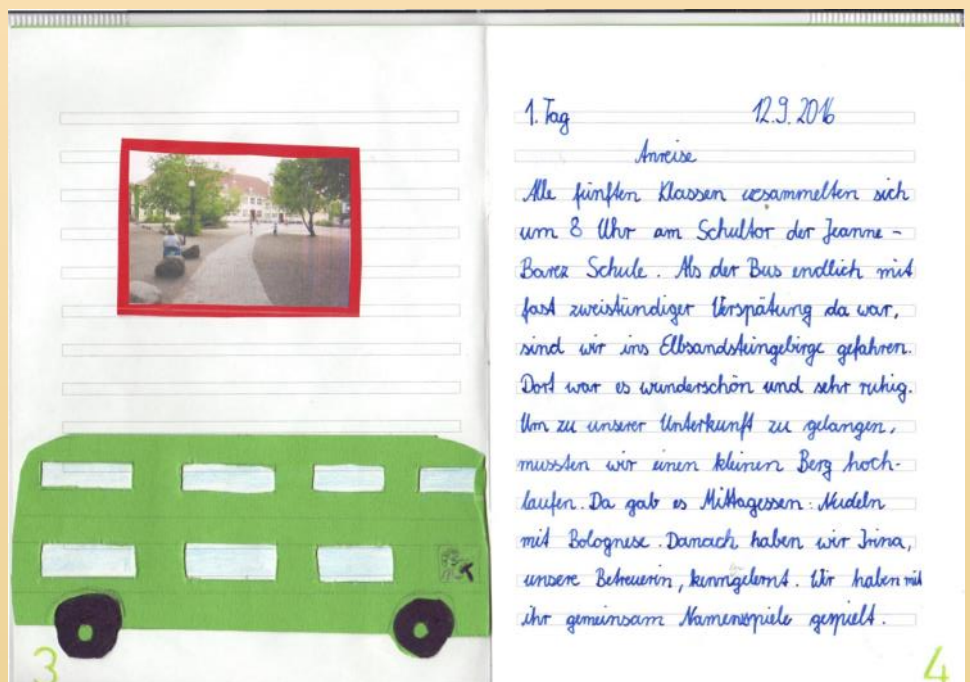 1. Tag 12.9.2016
Anreise
Alle fünften Klassen versammelten sich
um 8 Uhr am Schultor der Jeanne-
Barez Schule. Als der Bus endlich mit
fast zweistündiger Verspätung da war,
sind wir ins Elbsandsteingebirge gefahren.
Dort war es wunderschön und sehr ruhig.
Um zu unserer Unterkunft zu gelangen,
mussten wir einen kleinen Berg hoch-
laufen. Da gab es Mittagessen: Nudeln
mit Bolognese. Danach haben wir Irina,
unsere Betreuerin, kenngelernt. Wir haben mit
ihr gemeinsam Namenspiele gespielt.
3
4